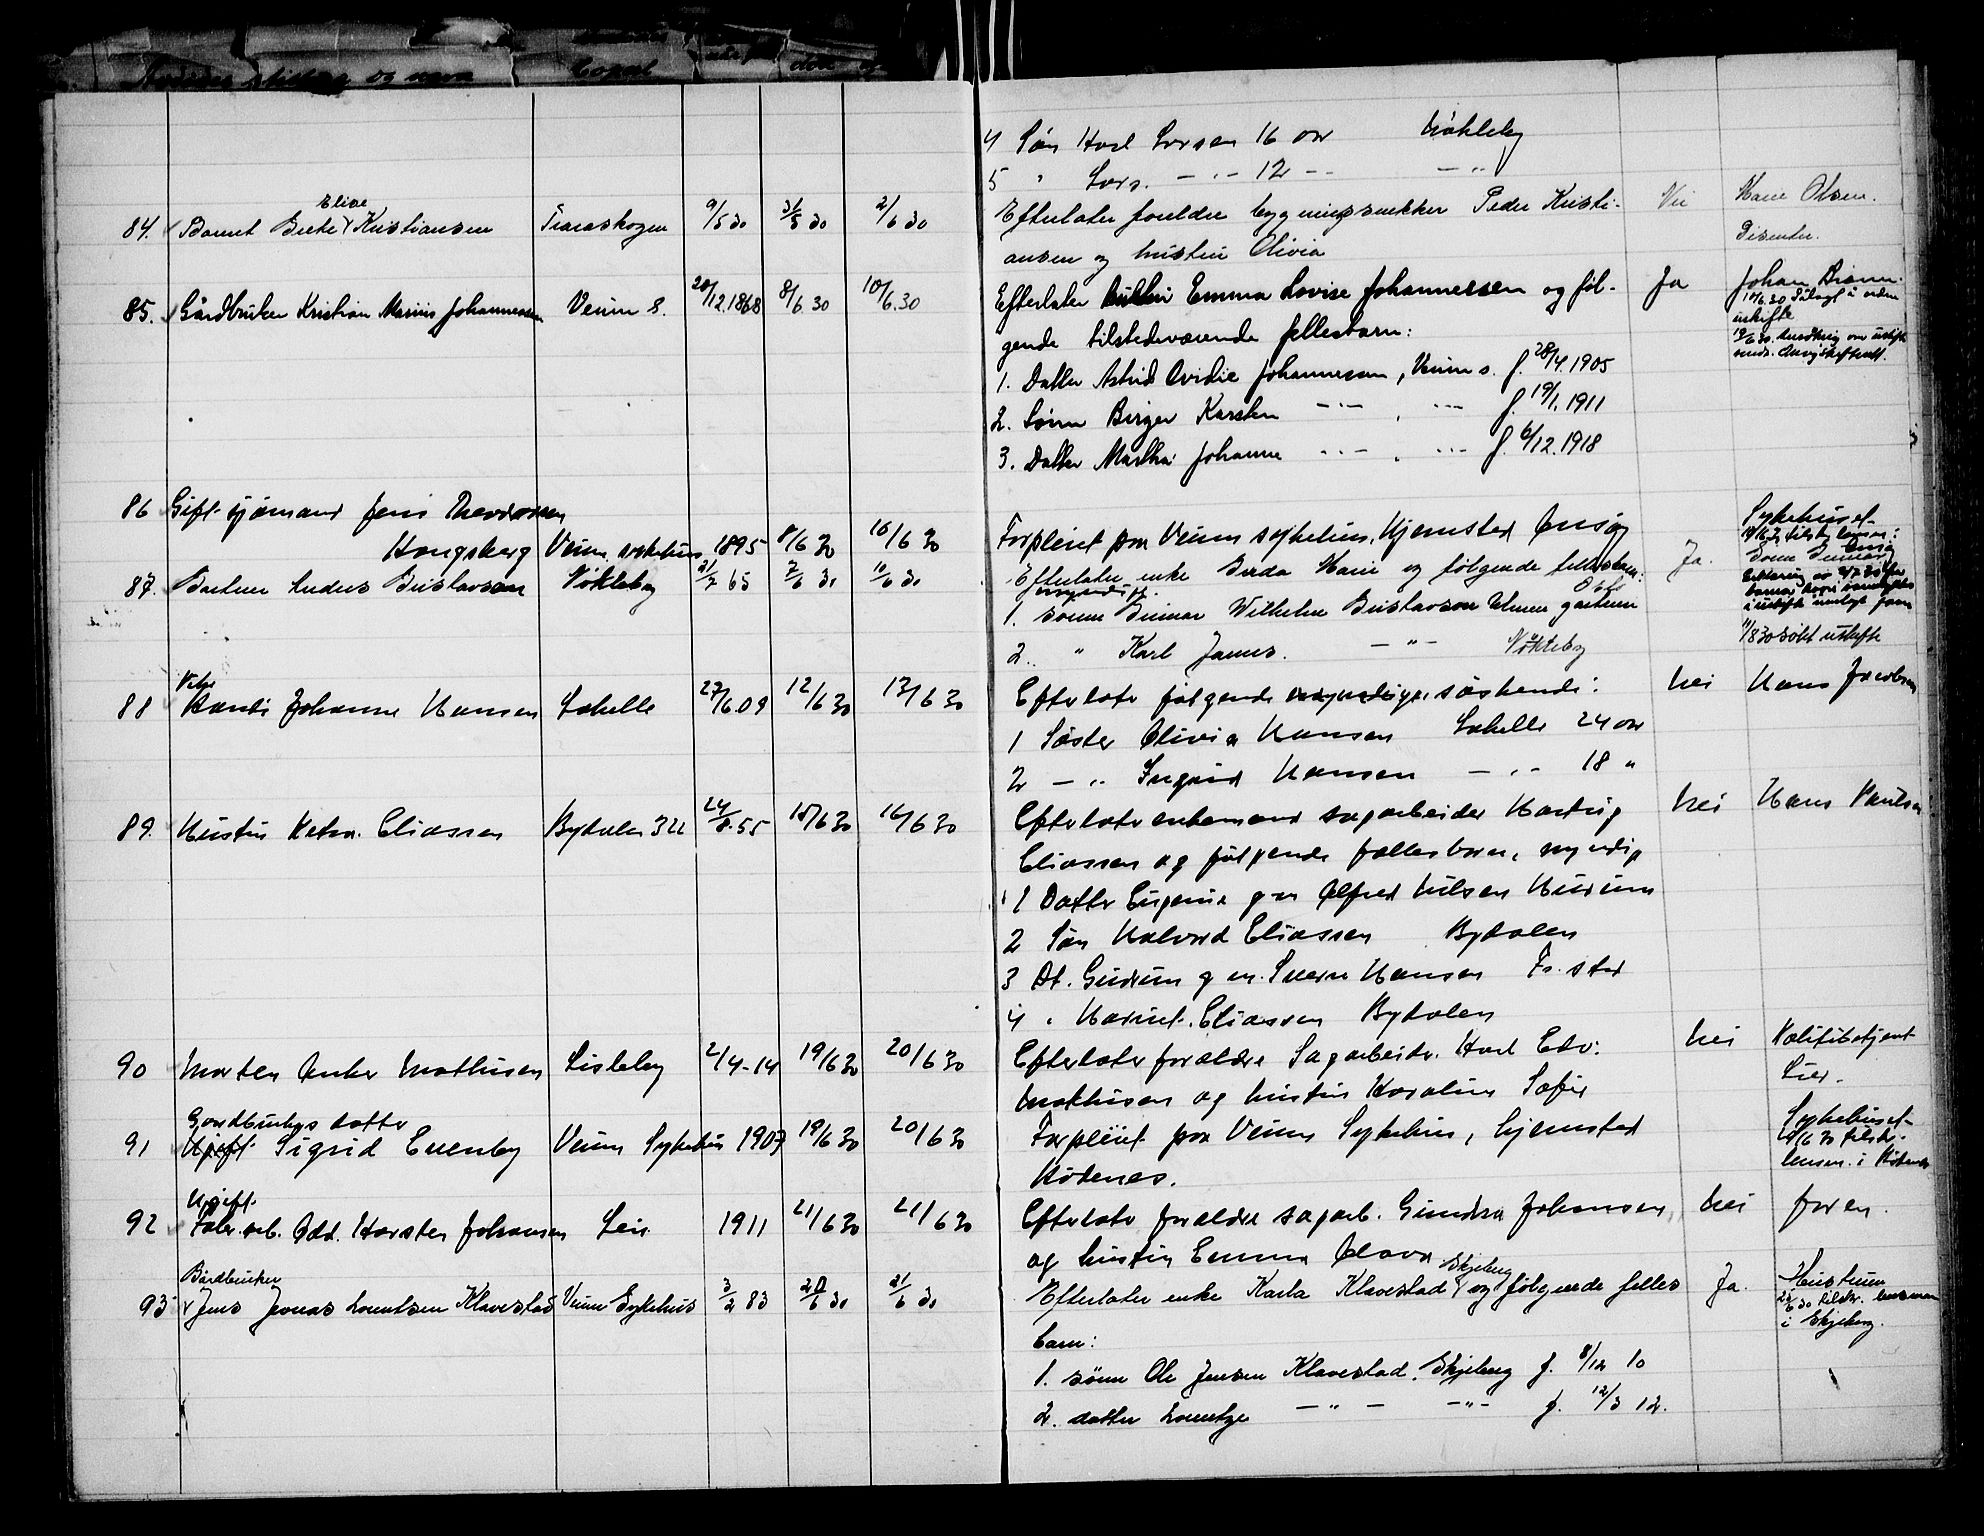 Avdødes stilling og navn Bopæl
4 Søn Karl Larsen 16 aar Nøkleby
5 " Lars. — " — 12 — — — " —
84. Barnet Berte Elise Kristiansen Traraskogen 9/5 30 31/5 30 2/6 30 Efterlater foreldre bygningssnekker Peder Kristi- Nei Marie Olsen.
ansen og hustru Olivia Disenter.
85. Gårdbruker Kristian Marius Johannessen Veum s. 20/12.1868 8/6 30 10/6.30 Efterlater Emma Lovise Johannessen og føl- Ja Johan
gende tilstedeværende fellesbarn:
1. Datter Astrid Ovidie Johannessen, Veum s. f. 28/4.1905
2. Sønn Birger Karsten — " — , — " — f. 19/1 1911
3. Datter Martha Johanne — " — , — " — f. 6/12.1918
86 Gift sjømand Jens Theodorsen
Kongsberg Veum sykehus 1895 8/6 30 10/6 30 Forpleiet paa Veum sykehus, Hjemsted Onsøy Sykehuset
87. Gartner Anders Gustavson Nøkleby 31/7 65 7/6 30 11/6 30 Efterlater enke Berda Marie og følgende fellesbarn: Ja.
1. sønn Gunnar Wilhelm Gustavson gartner Oslo
2. " Karl James. — " — Nøkleby 11/8 30 søkt utskifte
88 Pike Randi Johanne Hansen Lahelle 27/6.09 12/6 30 13/6 30 Efterlater følgende søskende: Nei Hans Jacobsen
1 Søster Olivia Hansen Lahelle 24 aar
2 — " Ingrid Hansen — " — 18 "
89. Hustru Petra Eliassen Bydalen 322 24/8.55 15/6 30 16/6 30 Efterlater enkemand sagarbeider Hartvig Nei Hans Paulsen
Eliassen og følgende fællesbarn, myndig
1 Datter Eugenie g m Alfred Nilsen Hurum
2 Søn Halvord Eliassen Bydalen
3 Dt. Gudrun g m. Sverre Hansen Fr. stad
4 " Harriet Eliassen Bydalen
90 Morten Anker Mathisen Lisleby 2/4-14 19/6 30 20/6 30 Efterlater forældre Sagarbeider Karl Edv. Nei Politibetjent
Mathisen og hustru Karoline Sofie Lier.
91 Gaardbrukers datter Ugift Sigrid Evenby Veum Sykehus 1907 19/6 30 20/6 30 Forpleiet paa Veum Sykehus, hjemsted Sykehuset
Rødenes.
92 Ugift Fabr. arb. Odd Karsten Johansen Leie 1911 21/6 30 21/6 30 Efterlater forældre sagarb. Gunder Johansen Nei faren.
og hustru Emma Olava
93 Gårdbruker Jens Jonas Lorentsen Klavestad Veum Sykehus 3/2 83 20/6 30 21/6 30 Efterlater enke Karla Klavestad Skjeberg og følgende felles Ja. Hustruen
barn: i Skjeberg.
1. sønn Ole Jensen Klavestad, Skjeberg f. 8/12 10
2. datter Lorentze — " — — " — f. 12/3 12.